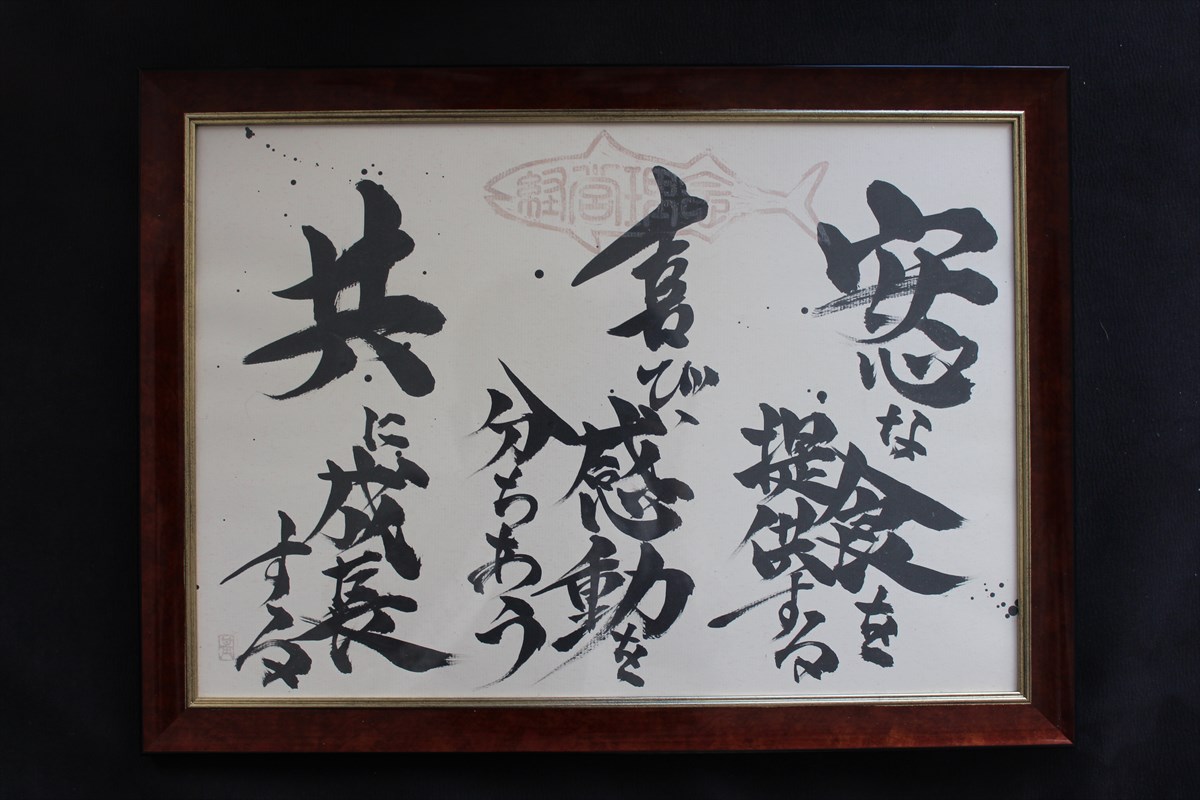 経営理念
安心な
食を
提供する
喜び、
感動を
分ちあう
共に
成長
する